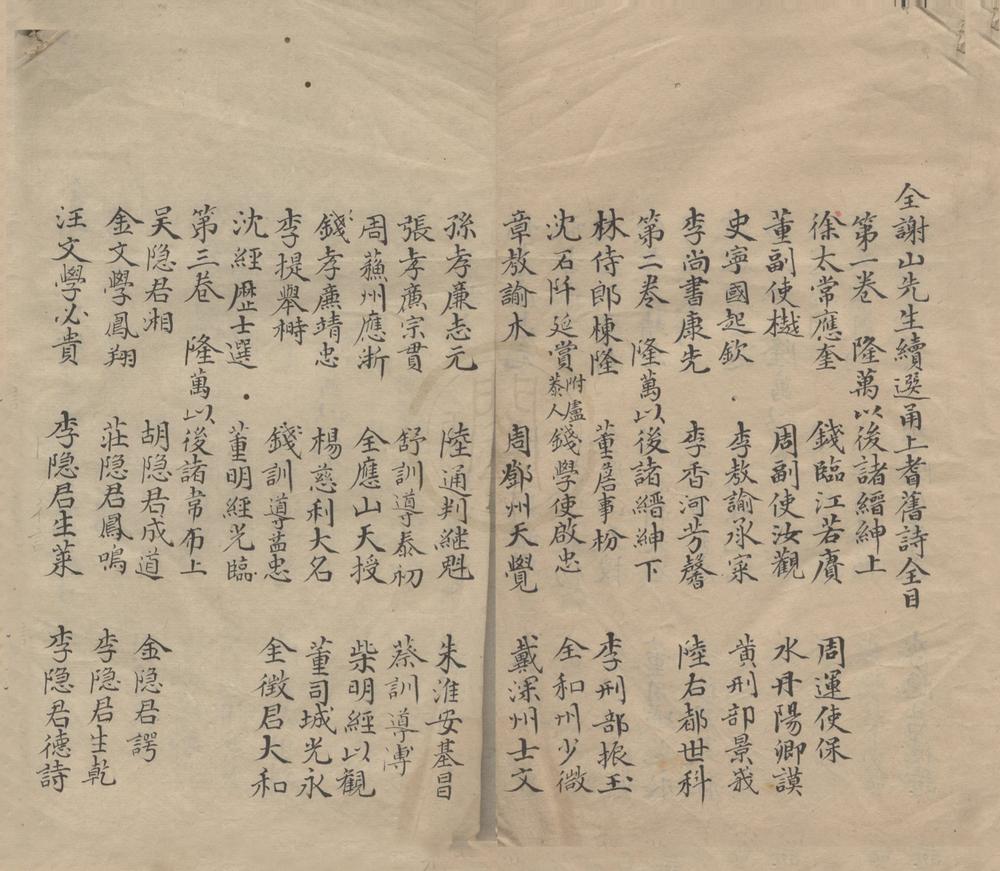 全謝山先生續選甬上耆舊詩全目
第一卷 隆萬以後諸縉紳上
徐太常應奎 錢臨江若賡 周運使保
董副使樾 周副使汝觀 水丹陽卿謨
史寧國起欽 李教諭承寀 黃刑部景莪
李尚書康先 李香河芳馨 陸右都世科
第二卷 隆萬以後諸縉紳下
林侍郎棟隆 董詹事枌 李刑部振玉
沈石阡延賞附盧泰人 錢學使啟忠 全和州少微
章教諭木 周鄧州天覺 戴深州士文
孫孝廉志元 陸通判繼魁 朱淮安基昌
張孝廉宗貫 舒訓導泰初 蔡訓導溥
周蘓州應浙 全應山天授 柴明經以觀
錢孝廉靖忠 楊慈利大名 董司城光永
李提舉榯 錢訓導藎忠 全徵君大和
沈經歷士選 董明經光臨
第三卷 隆萬以後諸韋布上
吴隐君湘 胡隐君成道 金隐君諤
金文學鳳翔 莊隐君鳳鳴 李隐君生乾
汪文學必貴 李隐君生萊 李隐君德詩